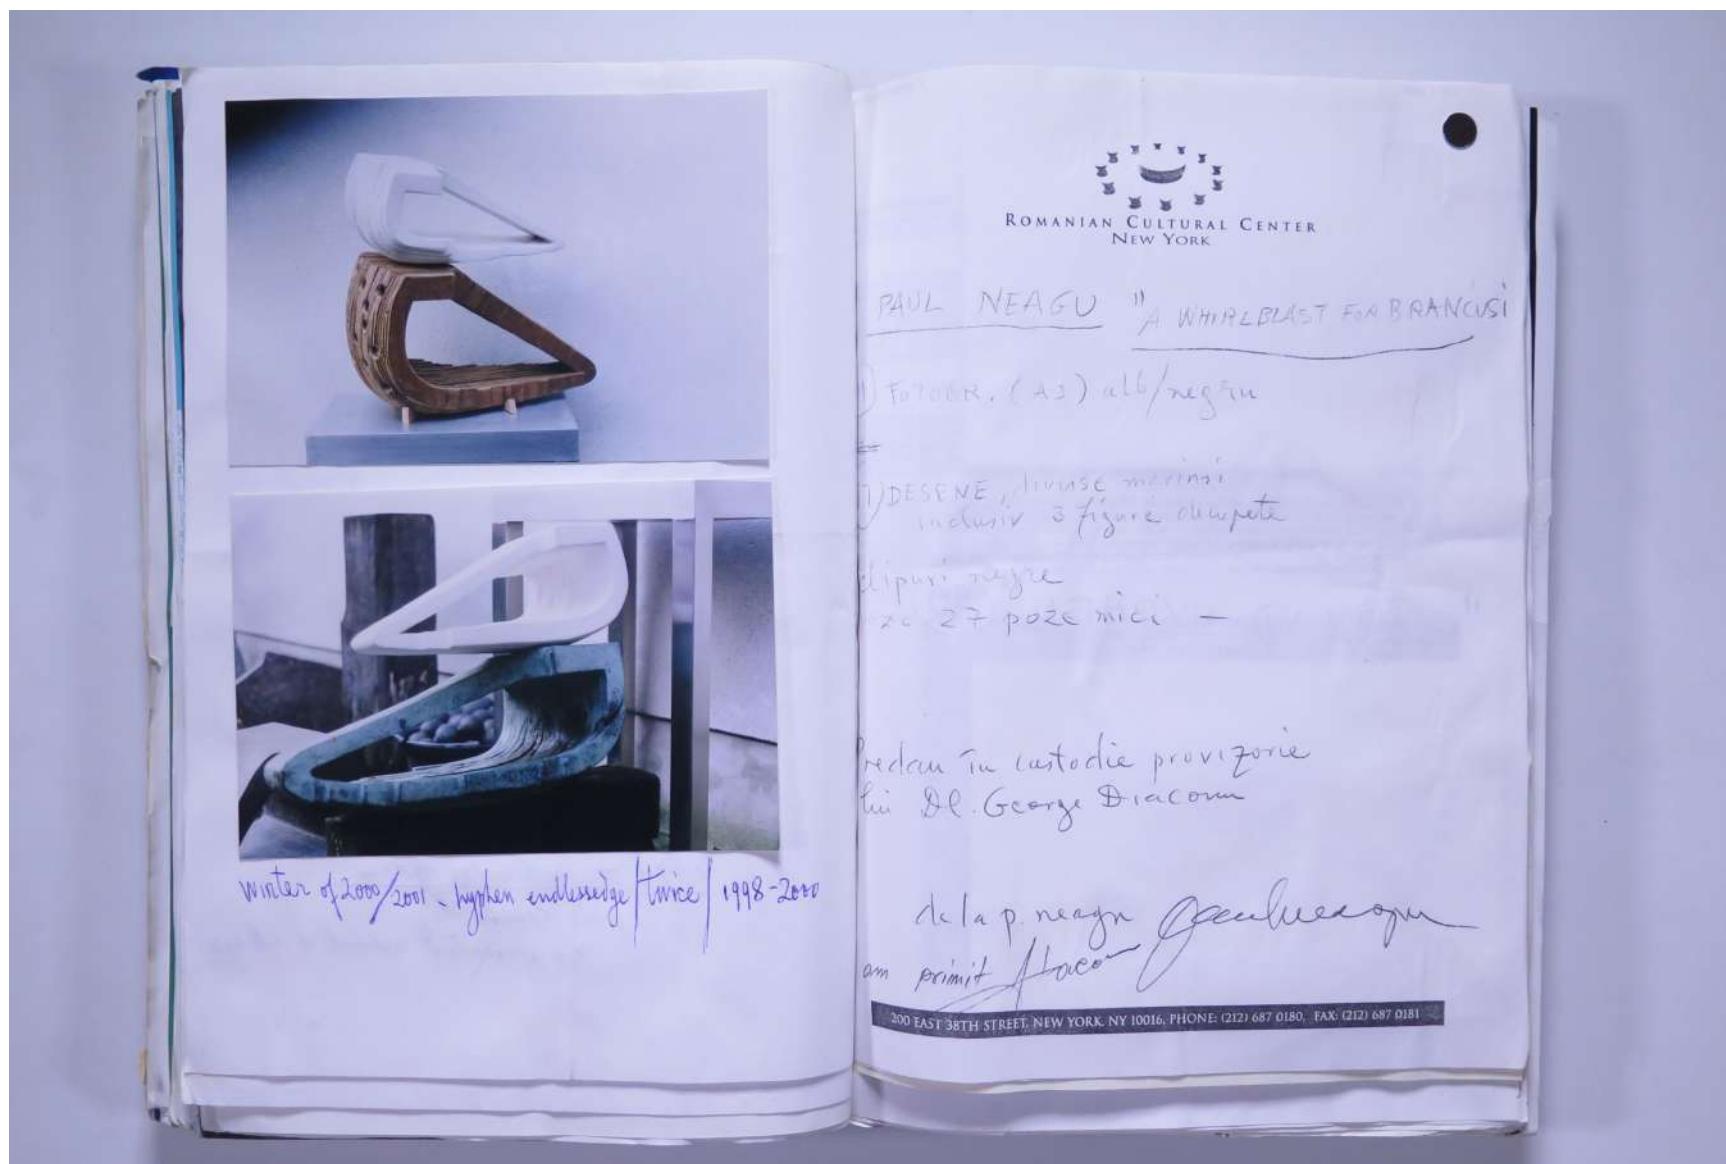 winter of 2000/2001 - hyphen endlessedge / twice / 1998-2000
ROMANIAN CULTURAL CENTER
NEW YORK
PAUL NEAGU "A WHIRLBLAST FOR BRANCUSI
1) FOTOGR. (A3) alb/negru
DESENE, diverse marimi
inclusiv 3 figure decupate
negre
27 poze mici -
Predau în custodie provizorie
lui Dl. George Diaconu
de la p. neagu
am primit
200 EAST 38TH STREET, NEW YORK, NY 10016, PHONE: (212) 687 0180, FAX: (212) 687 0181